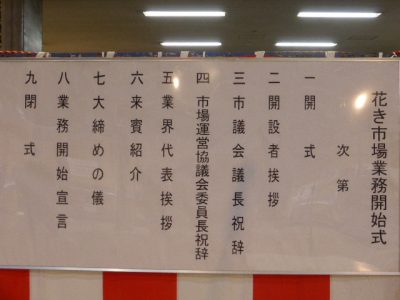 花き市場業務開始式
次第
一 開式
二 開設者挨拶
三 市議会議長祝辞
四 市場運営協議会委員長祝辞
五 業界代表挨拶
六 来賓紹介
七 大締めの儀
八 業務開始宣言
九 閉式